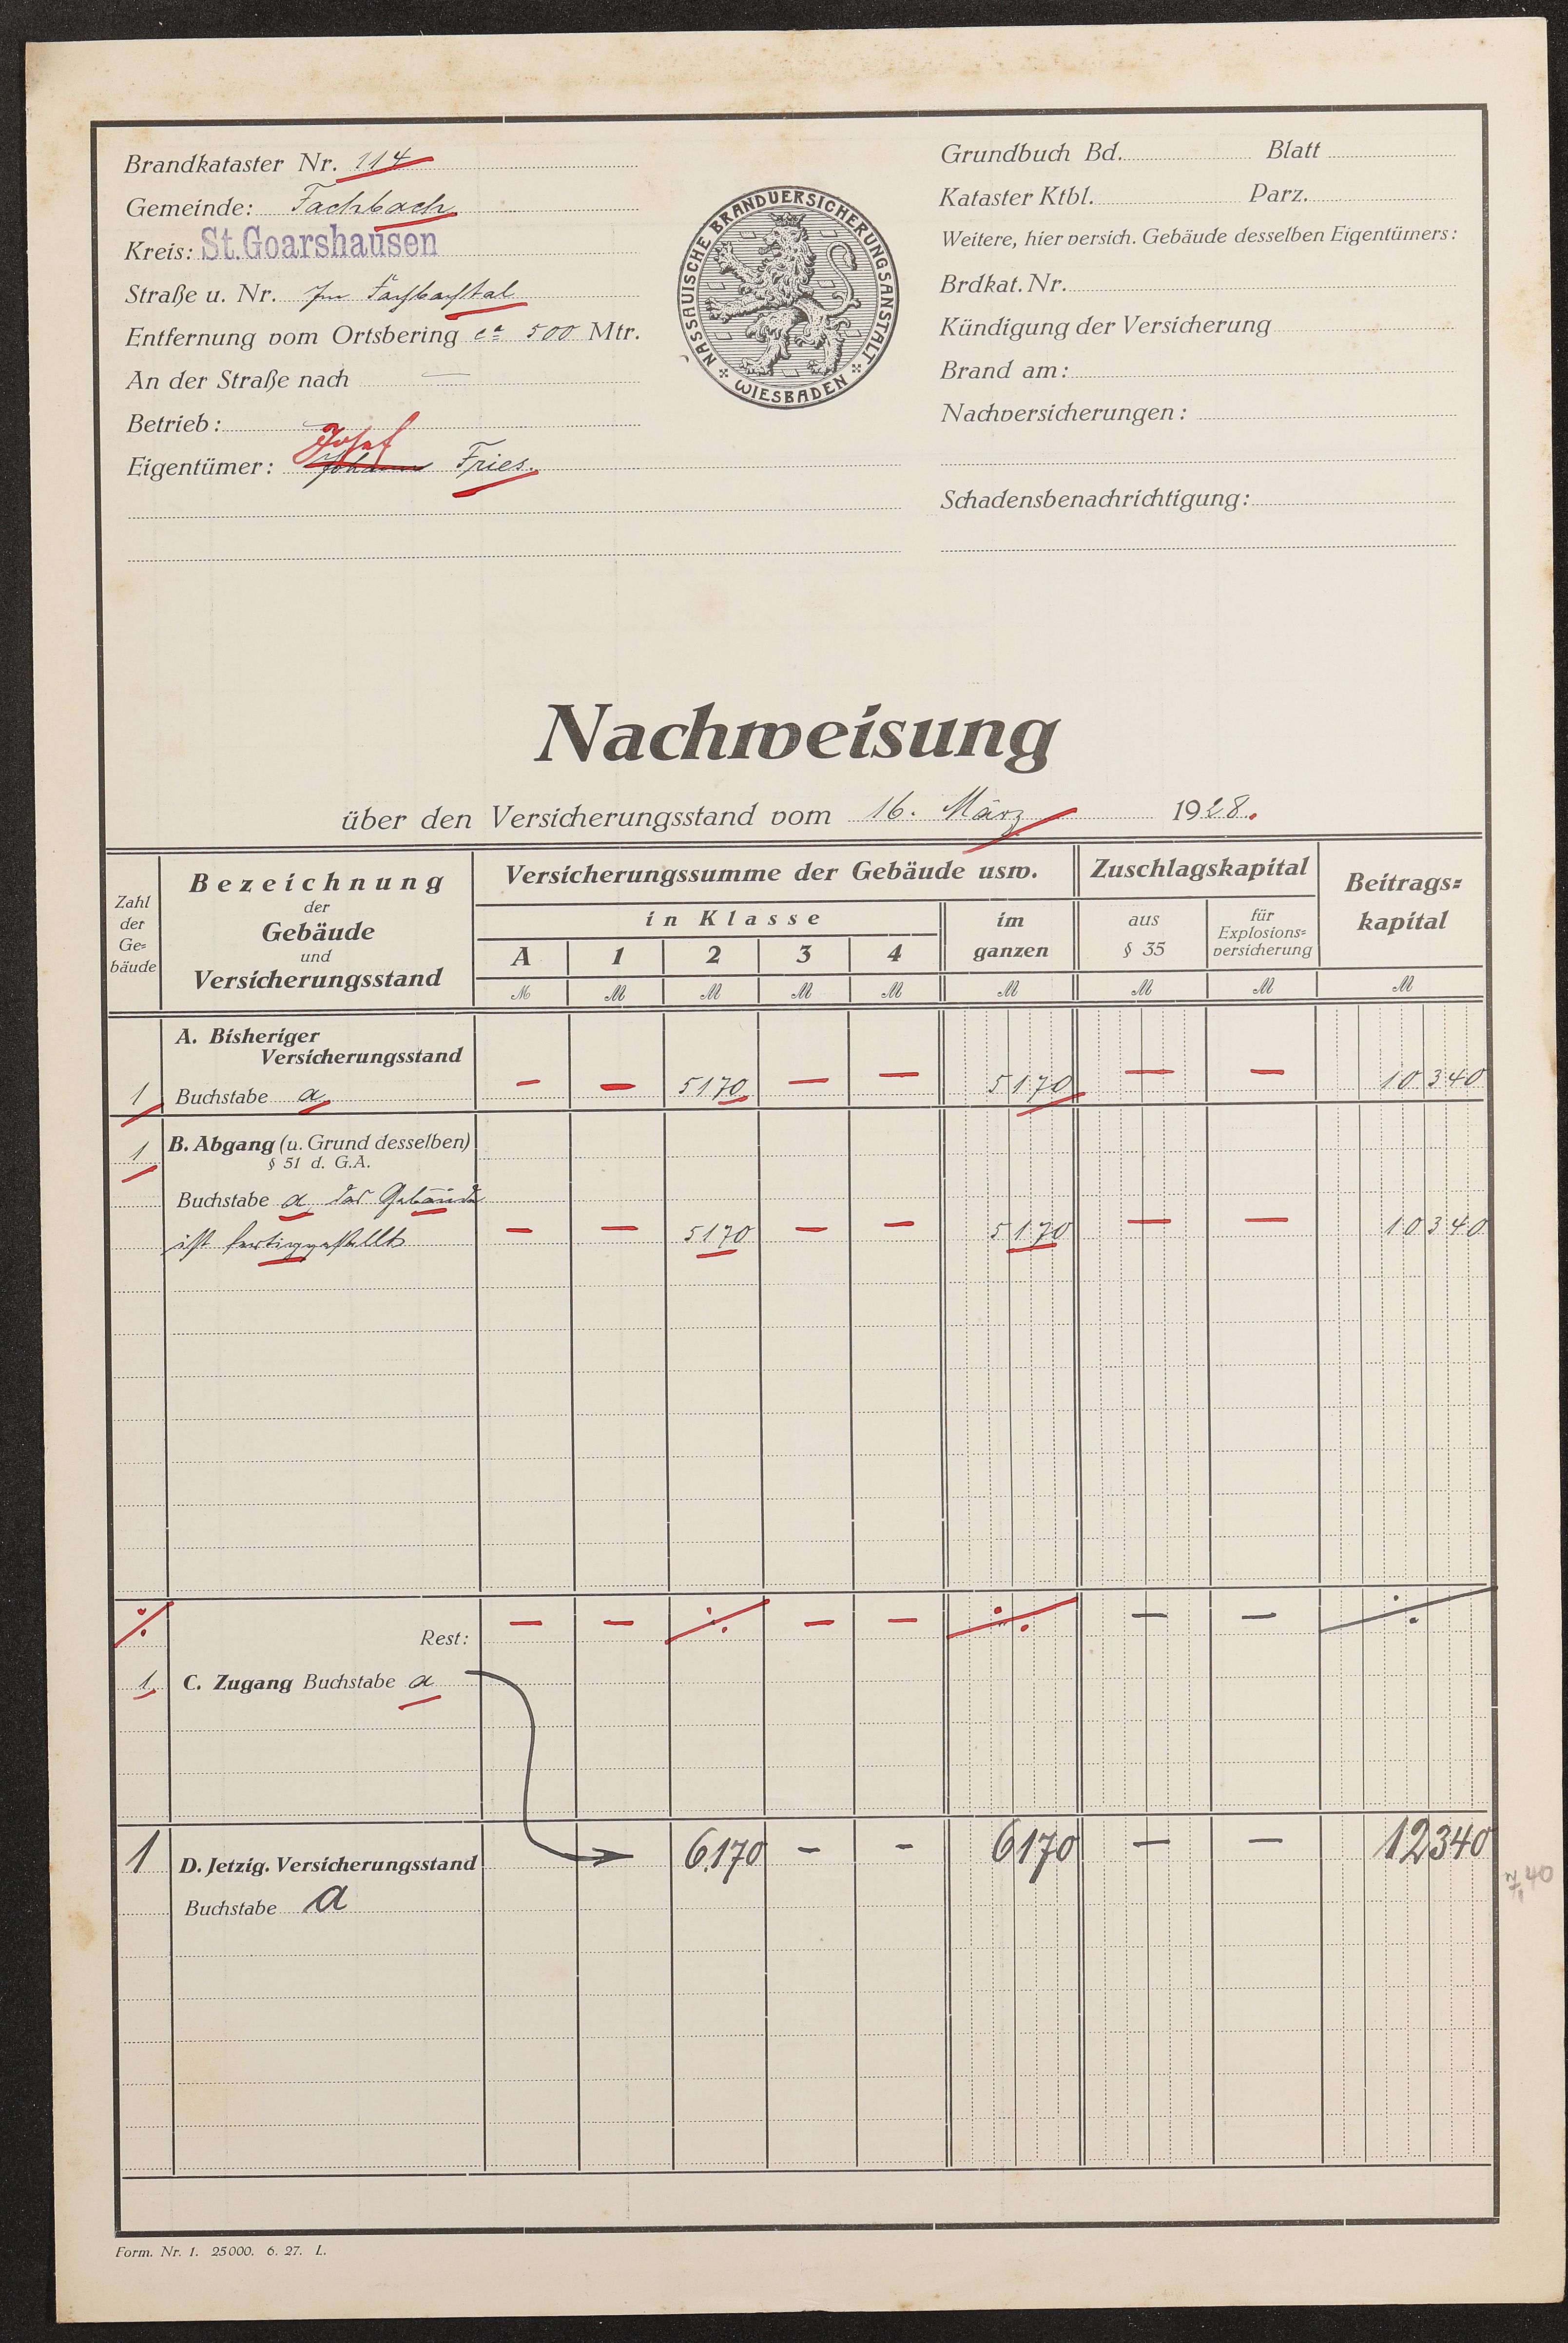 Brandkataster Nr. 114
Gemeinde: Fachbach
Kreis: St. Goarshausen
Straße u. Nr. Im Fachbachtal
Entfernung vom Ortsbering ca 500 Mtr.
An der Straße nach —
Betrieb:
Josef
Eigentümer: Johann Fries.
NASSAUISCHE BRANDVERSICHERUNGSANSTALT
WIESBADEN
Grundbuch Bd. Blatt
Kataster Ktbl. Parz.
Weitere, hier versich. Gebäude desselben Eigentümers:
Brdkat. Nr.
Kündigung der Versicherung
Brand am:
Nachversicherungen:
Schadensbenachrichtigung:
Nachweisung
über den Versicherungsstand vom 16. März 1928.
Zahl der Ge=bäude
Bezeichnung
der
Gebäude
und
Versicherungsstand
Versicherungssumme der Gebäude usw.
in Klasse
A 1 2 3 4
im ganzen
Zuschlagskapital
aus § 35
für Explosions=versicherung
Beitrags=kapital
M M M M M M M M M
A. Bisheriger
Versicherungsstand
1 Buchstabe a — — 5170 — — 5170 — — 10340
1 B. Abgang (u. Grund desselben)
§ 51 d. G.A.
Buchstabe a, das Gebäude
ist fertiggestellt — — 5170 — — 5170 — — 10340
./. Rest: — — ./. — — ./. — — ./.
1 C. Zugang Buchstabe a
1 D. Jetzig. Versicherungsstand 6170 — — 6170 — — 12340
7,40
Buchstabe a
Form. Nr. 1. 25000. 6. 27. L.